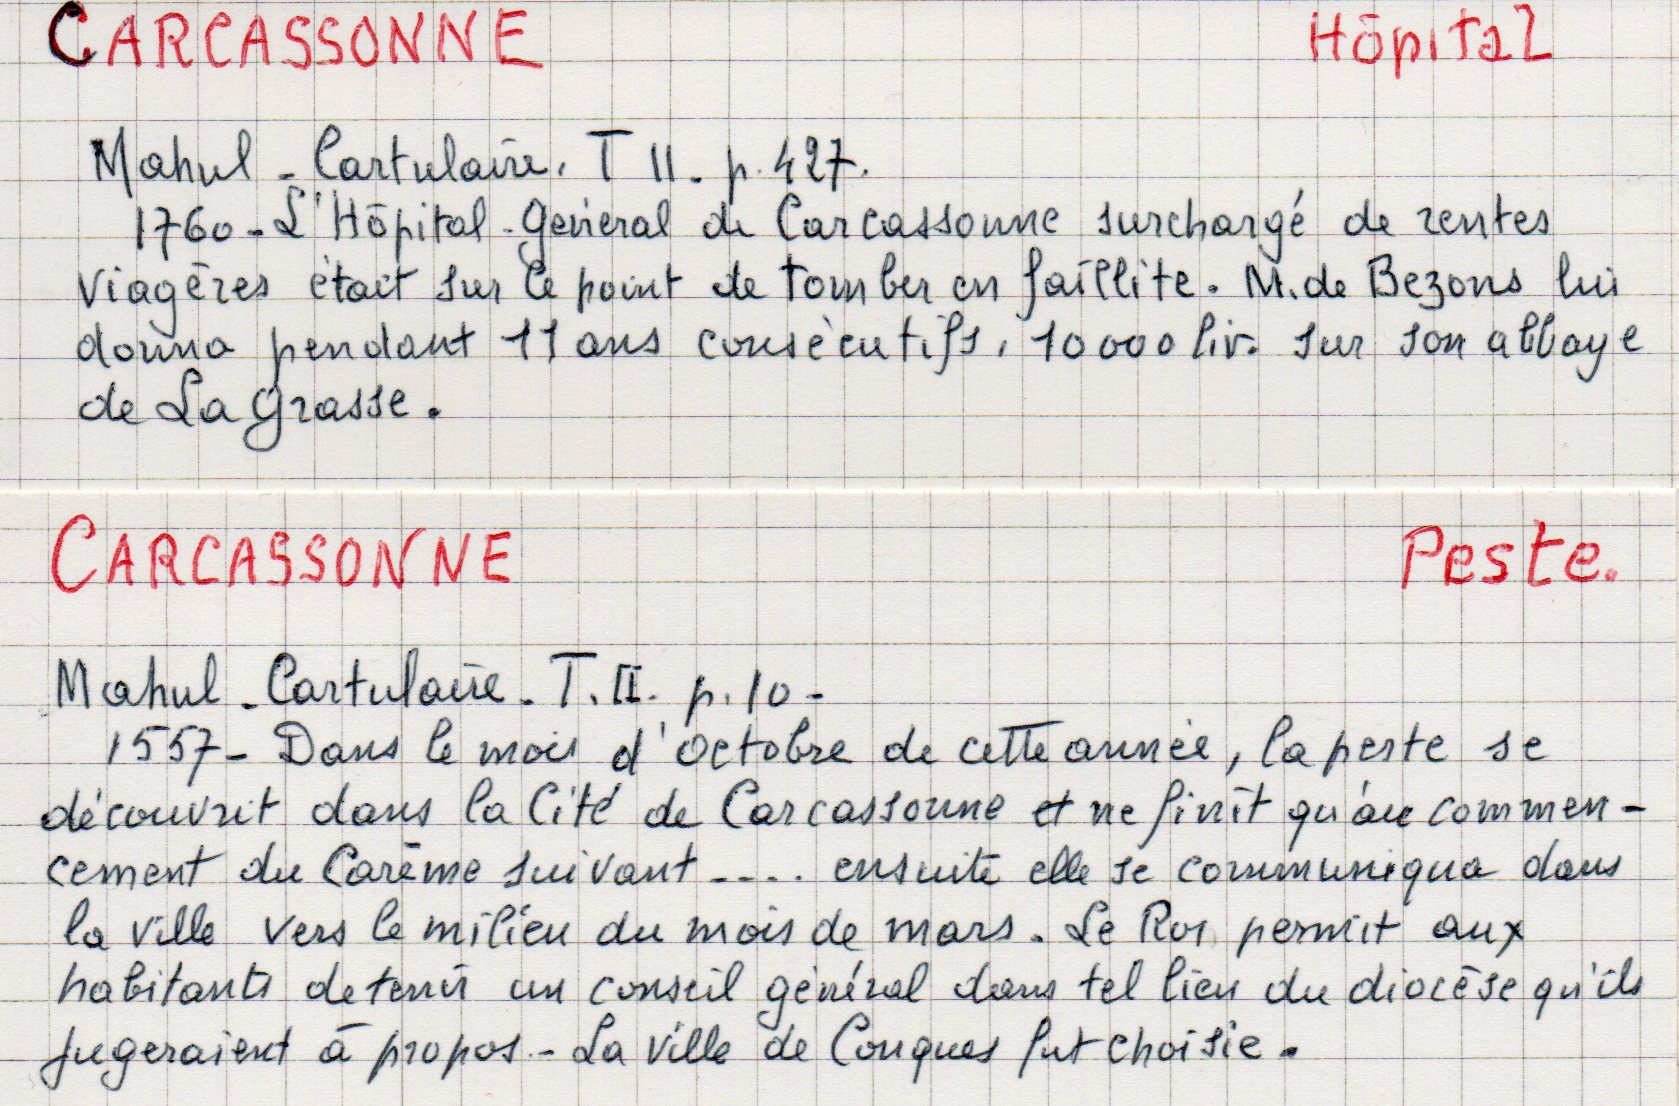 CARCASSONNE Hôpital
Mahul - Cartulaire. T II. p. 427.
1760 - L'Hôpital-général de Carcassonne surchargé de rentes
viagères était sur le point de tomber en faillite. M. de Bezons lui
donna pendant 11 ans consécutifs, 10000 liv. sur son abbaye
de La Grasse.
CARCASSONNE Peste.
Mahul - Cartulaire - T. II. p. 10 -
1557 - Dans le mois d'Octobre de cette année, la peste se
découvrit dans la Cité de Carcassonne et ne finit qu'au commen-
cement du Carême suivant .... ensuite elle se communiqua dans
la ville vers le milieu du mois de mars. Le Roi permit aux
habitants de tenir un conseil général dans tel lieu du diocèse qu'ils
jugeraient à propos - La ville de Conques fut choisie.